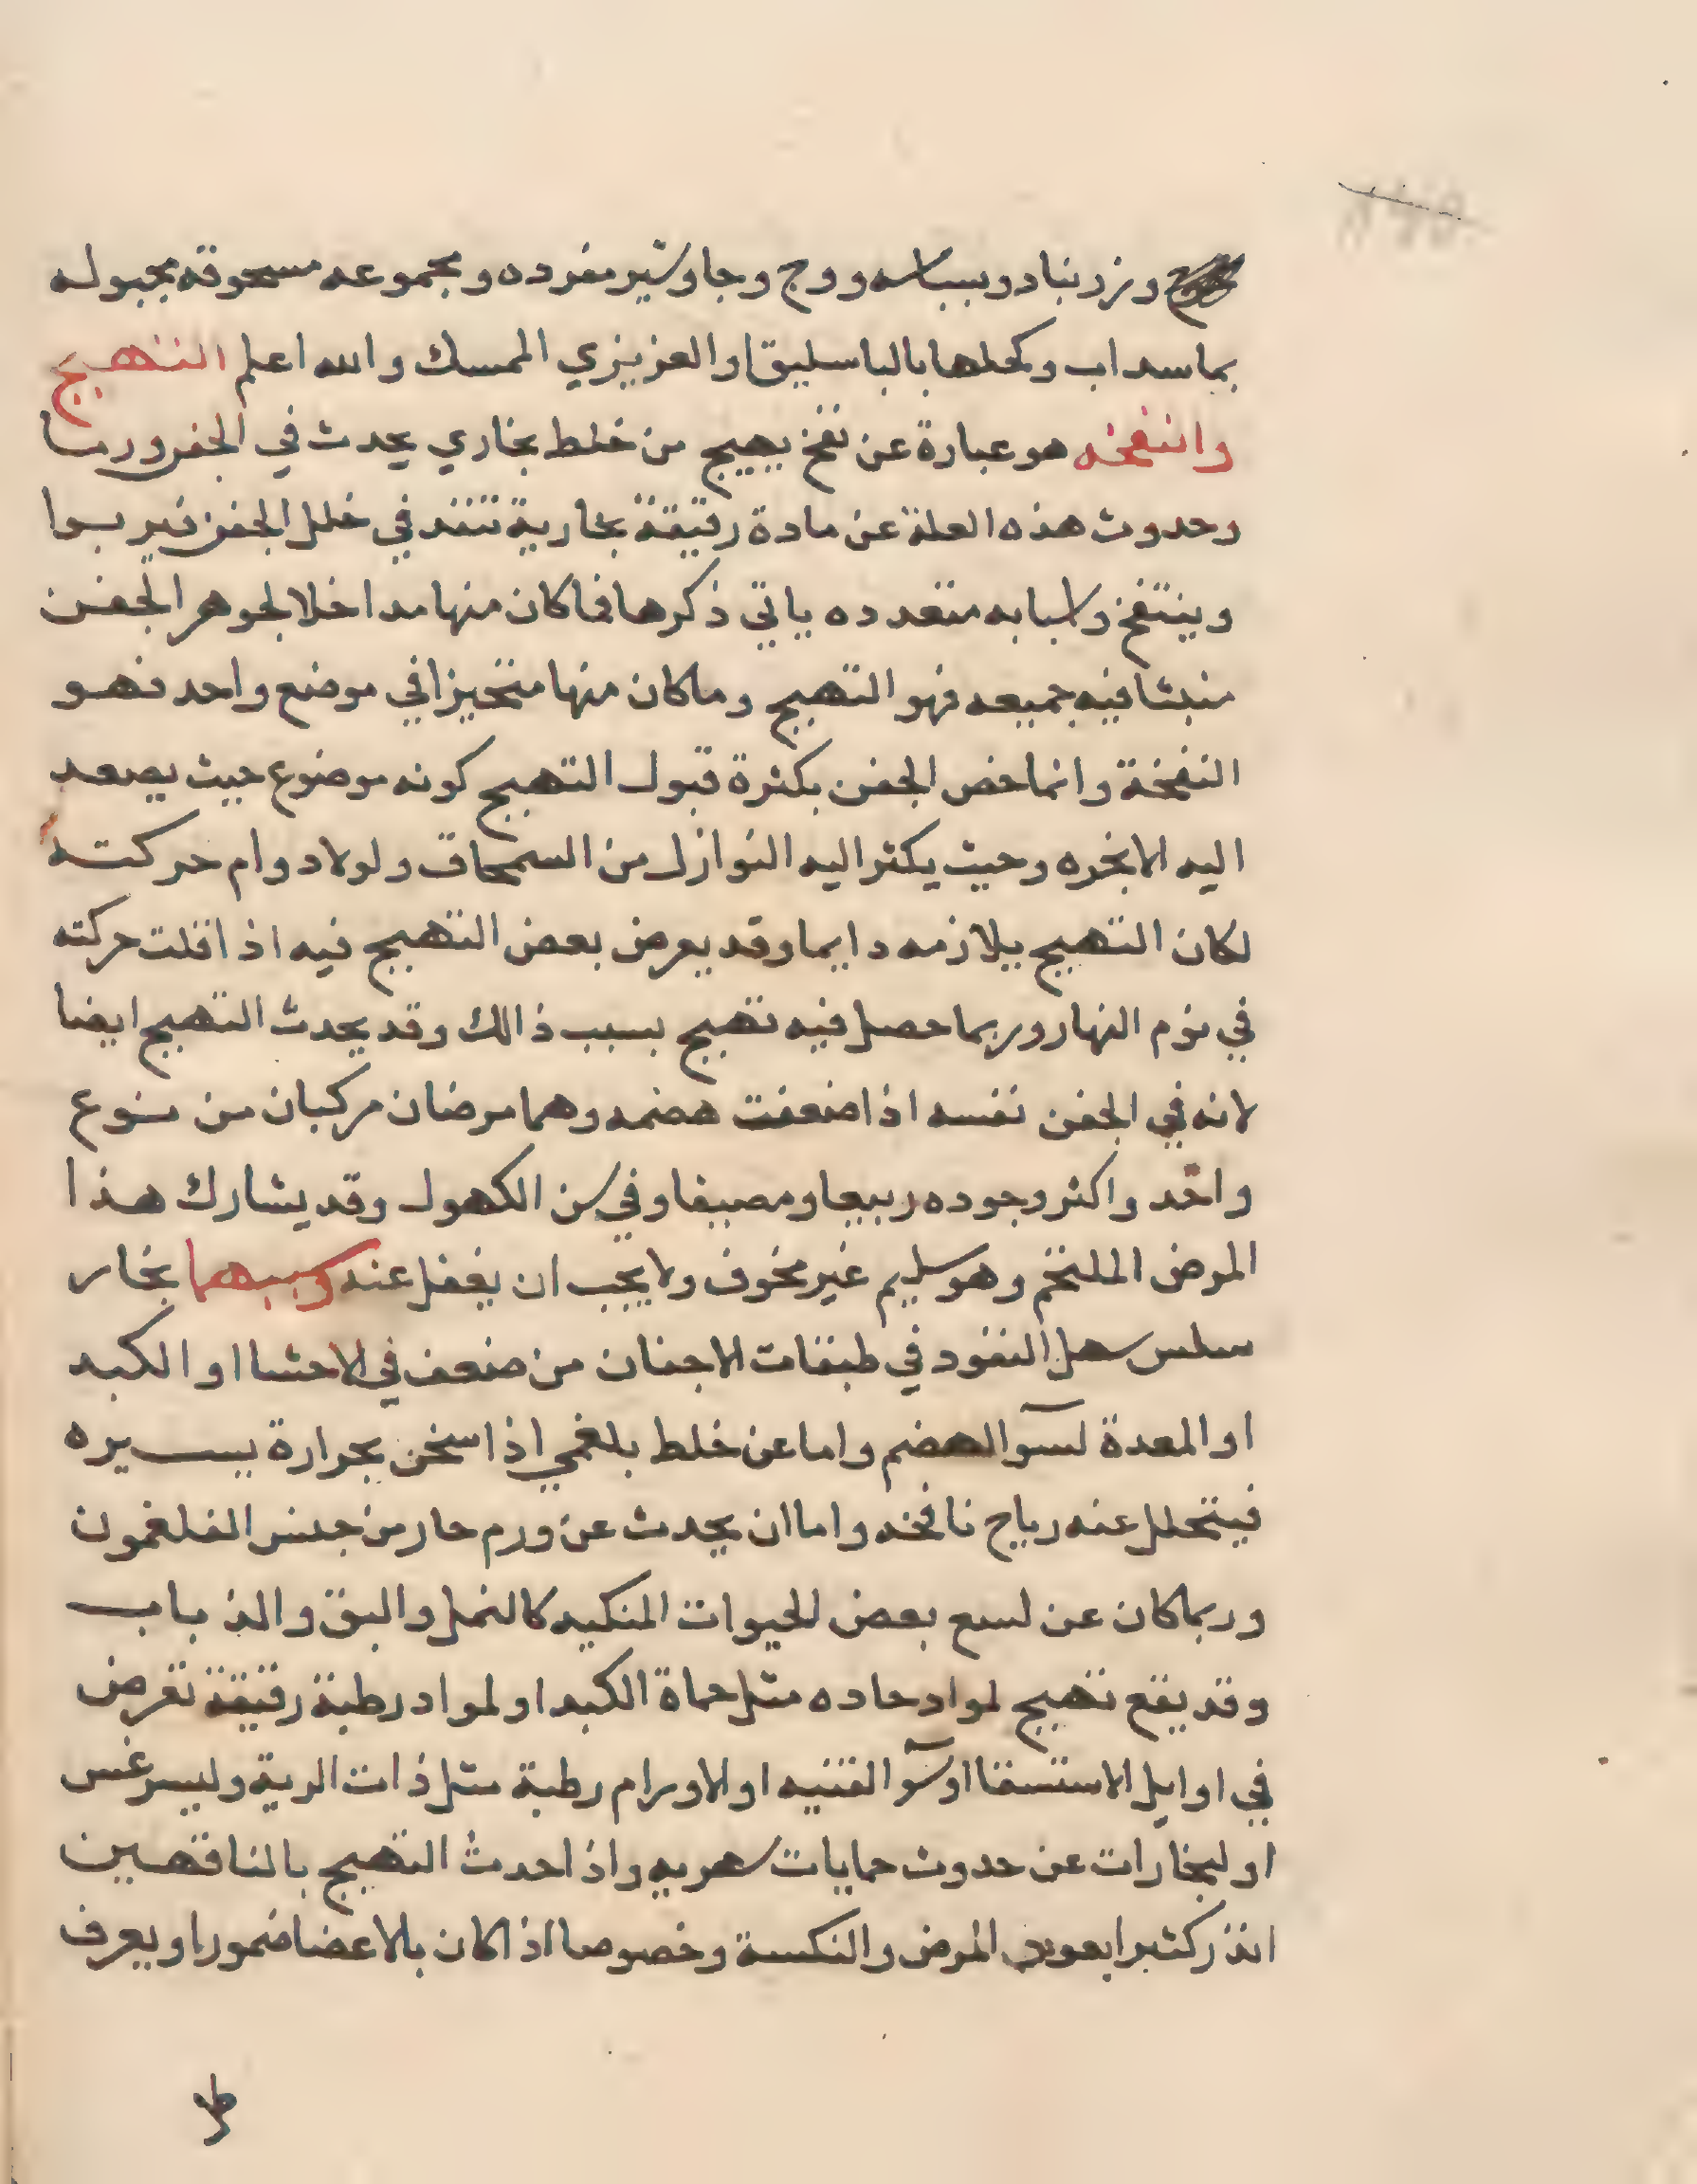 وزرنباد وبسباسه ووج وجاوشير مفرده ومجموعه مسحوقه مجبوله
بماسداب وكحلها بالباسليق او العزيزي الممسك والله اعلم التهيج
وانتفخه هو عبارة عن نفخ يهيج من خلط بخاري يحدث في الجفن ورما
وحدوث هذه العلة عن مادة رقيقة بخارية تنفد في خلل الجفن فيربوا
وينتفخ واسبابه متعدده ياتي ذكرها فما كان منها مداخلا لجوهر الجفن
منبثا فيه جميعه فهو التهيج وما كان منها متحيزا في موضع واحد فهو
النفخة وانما خص الجفن بكثرة قبول التهيج كونه موضوع حيث يصعد
اليه الابخره وحيث يكثر اليه النوازل من السمحاق ولولا دوام حركته
لكان التهيج يلازمه دايما وقد يعرض بعض التهيج فيه اذا قلت حركته
في نوم النهار وربما حصل فيه تهيج بسبب ذالك وقد يحدث التهيج ايضا
لانه في الجفن نفسه اذا ضعفت هضمه وهما مرضان مركبان من نوع
واحد واكثر وجوده ربيعا ومصيفا وفي سن الكهول وقد يشارك هذا
المرض الملتخم وهو سليم غير مخوف ولا يجب ان يغفل عنه وسببهما بخار
سلس سهل النفود في طبقات الاجفان من ضعف في الاحشا او الكبد
او المعدة لسوا الهضم واما عن خلط بلغمي اذا سخن بحرارة يسيره
فيتحلل عنه رياح نافخه واما ان يحدث عن ورم حار من جنس الفلغمون
وربما كان عن لسع بعض الحيوات المنكيه كالنمل والبق والذباب
وقد يقع تهيج لمواد حاده مثل حماة الكبد او لمواد رطبة رقيقة تعرض
في اوايل الاستسقا او سوا القنيه او الاورام رطبة مثل ذات الرية وليسرغس
او لبخارات عن حدوث حمايات سهريه واذا حدث التهيج بالناقهين
انذر كثيرا بعود المرض والنكسة وخصوصا اذا كان بالاعضا ضمورا ويعرف